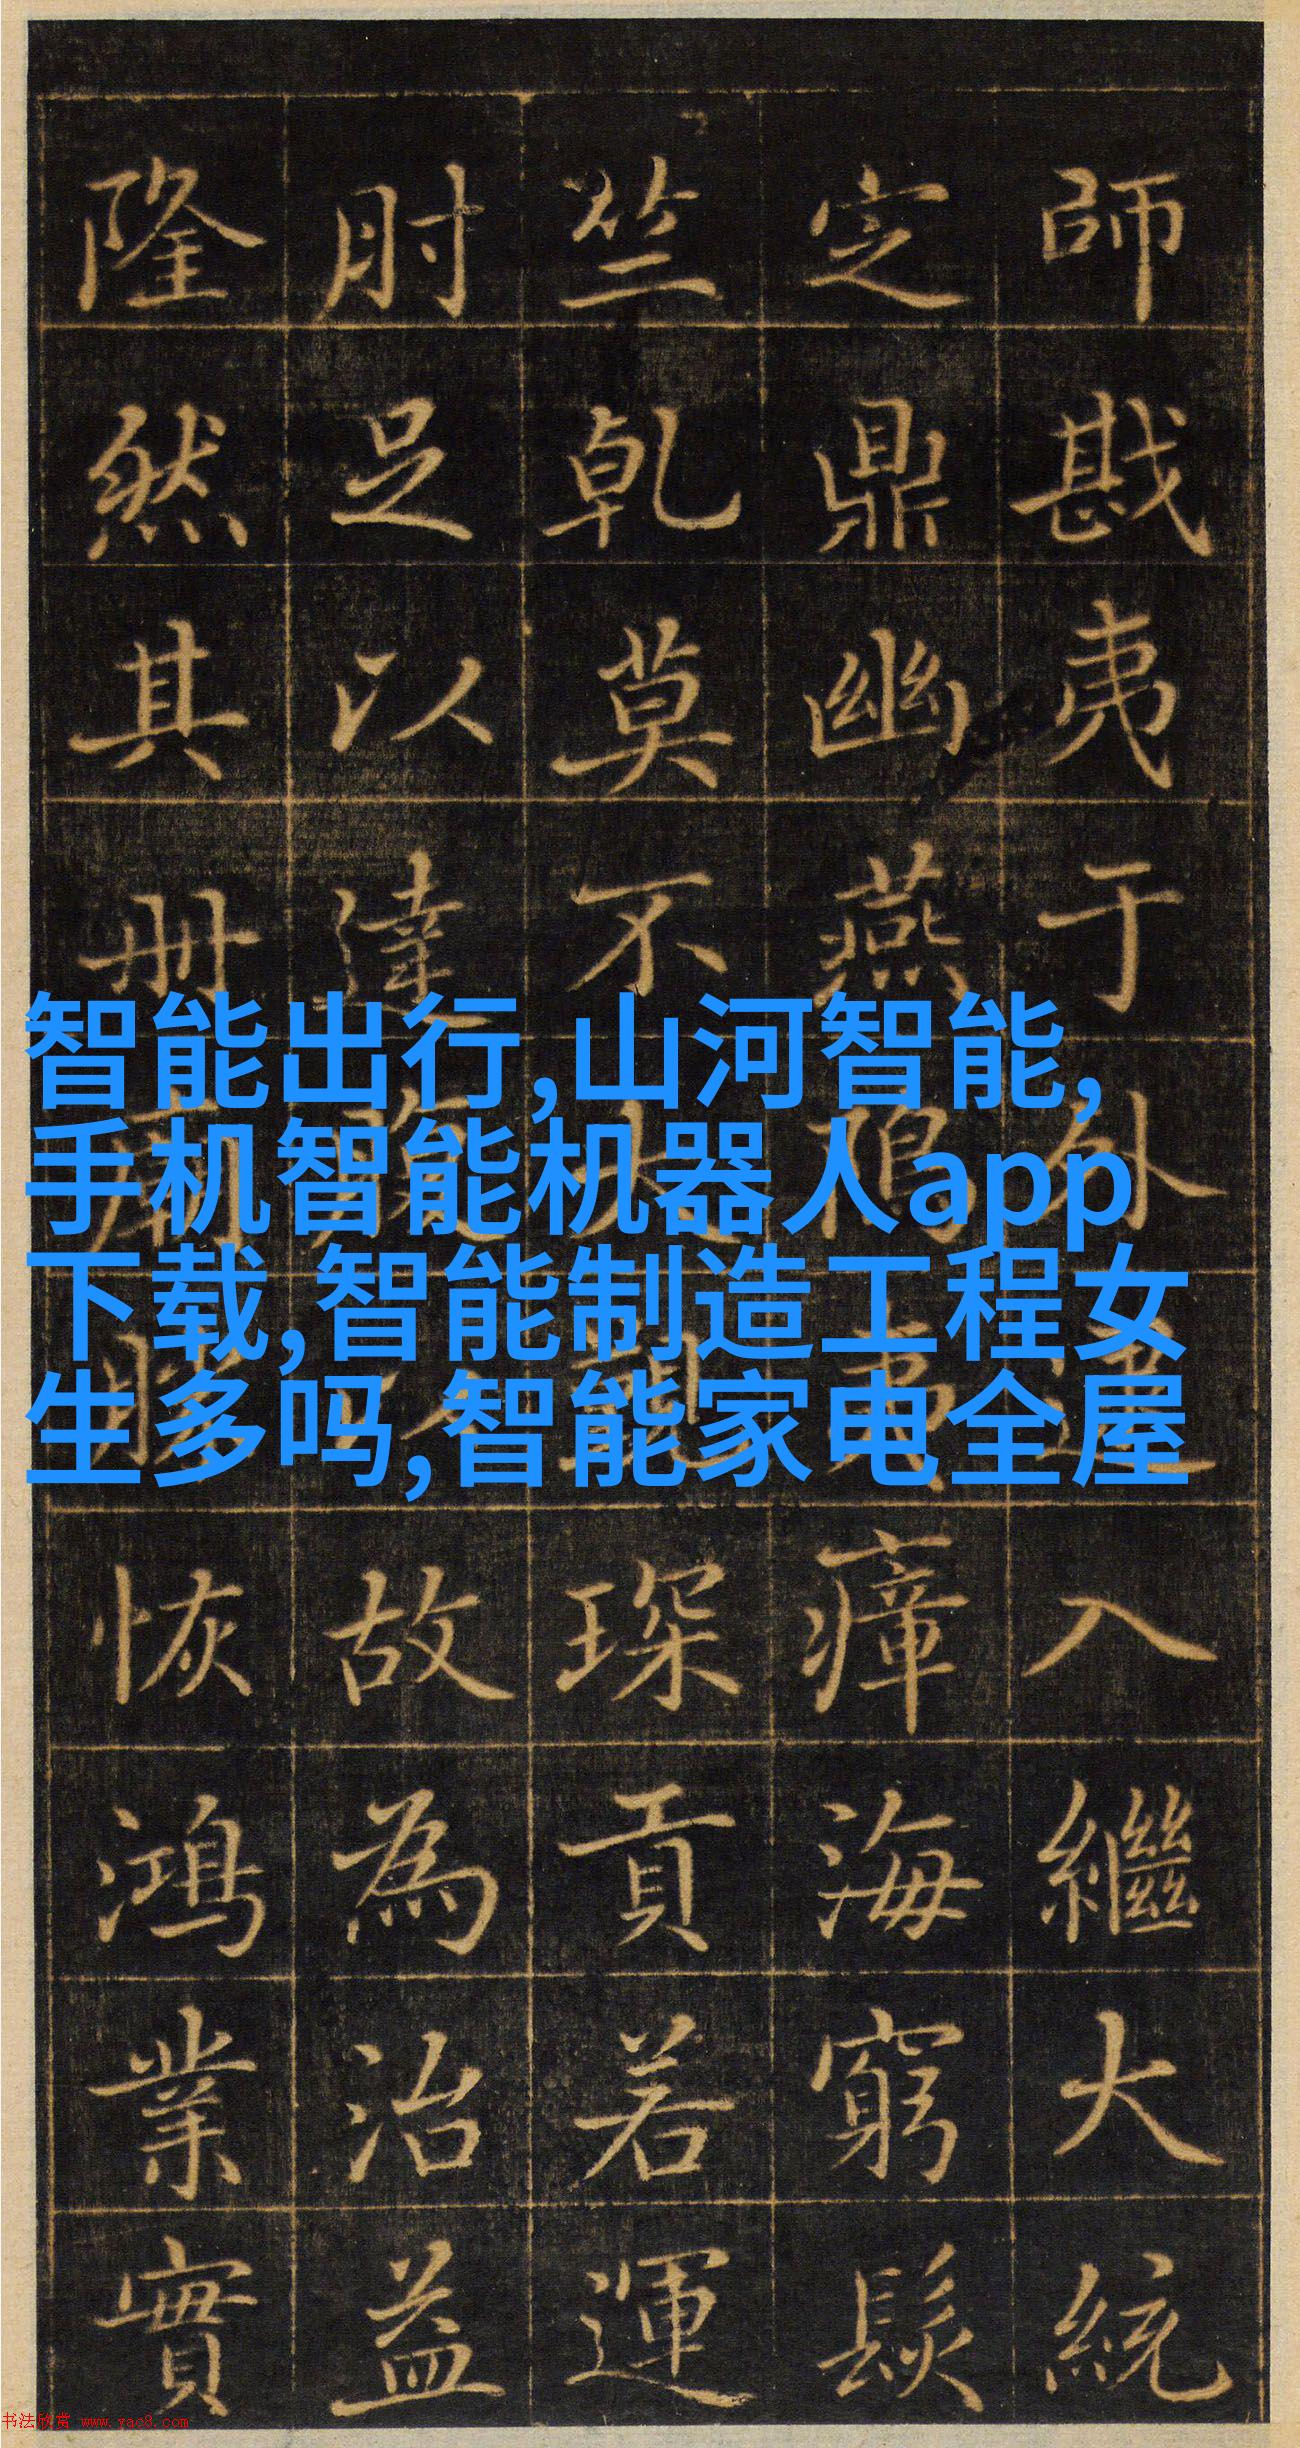 師戡夷于外入繼大統
定鼎幽燕瘴海窮髮
竺乾莫不大琛貢若運
肘足以達故為治益
隆然其册恢鴻業實
智能出行,山河智能,
手机智能机器人app
下载,智能制造工程女
生多吗,智能家电全屋
书法欣赏 www.yac8.com